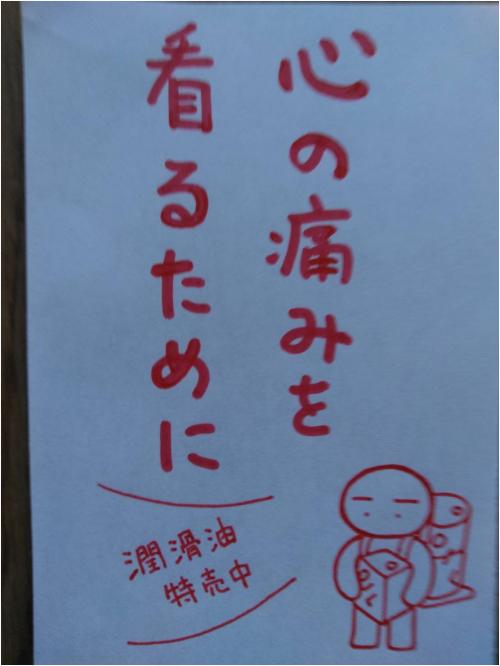 心の痛みを
看るために
潤滑油
特売中